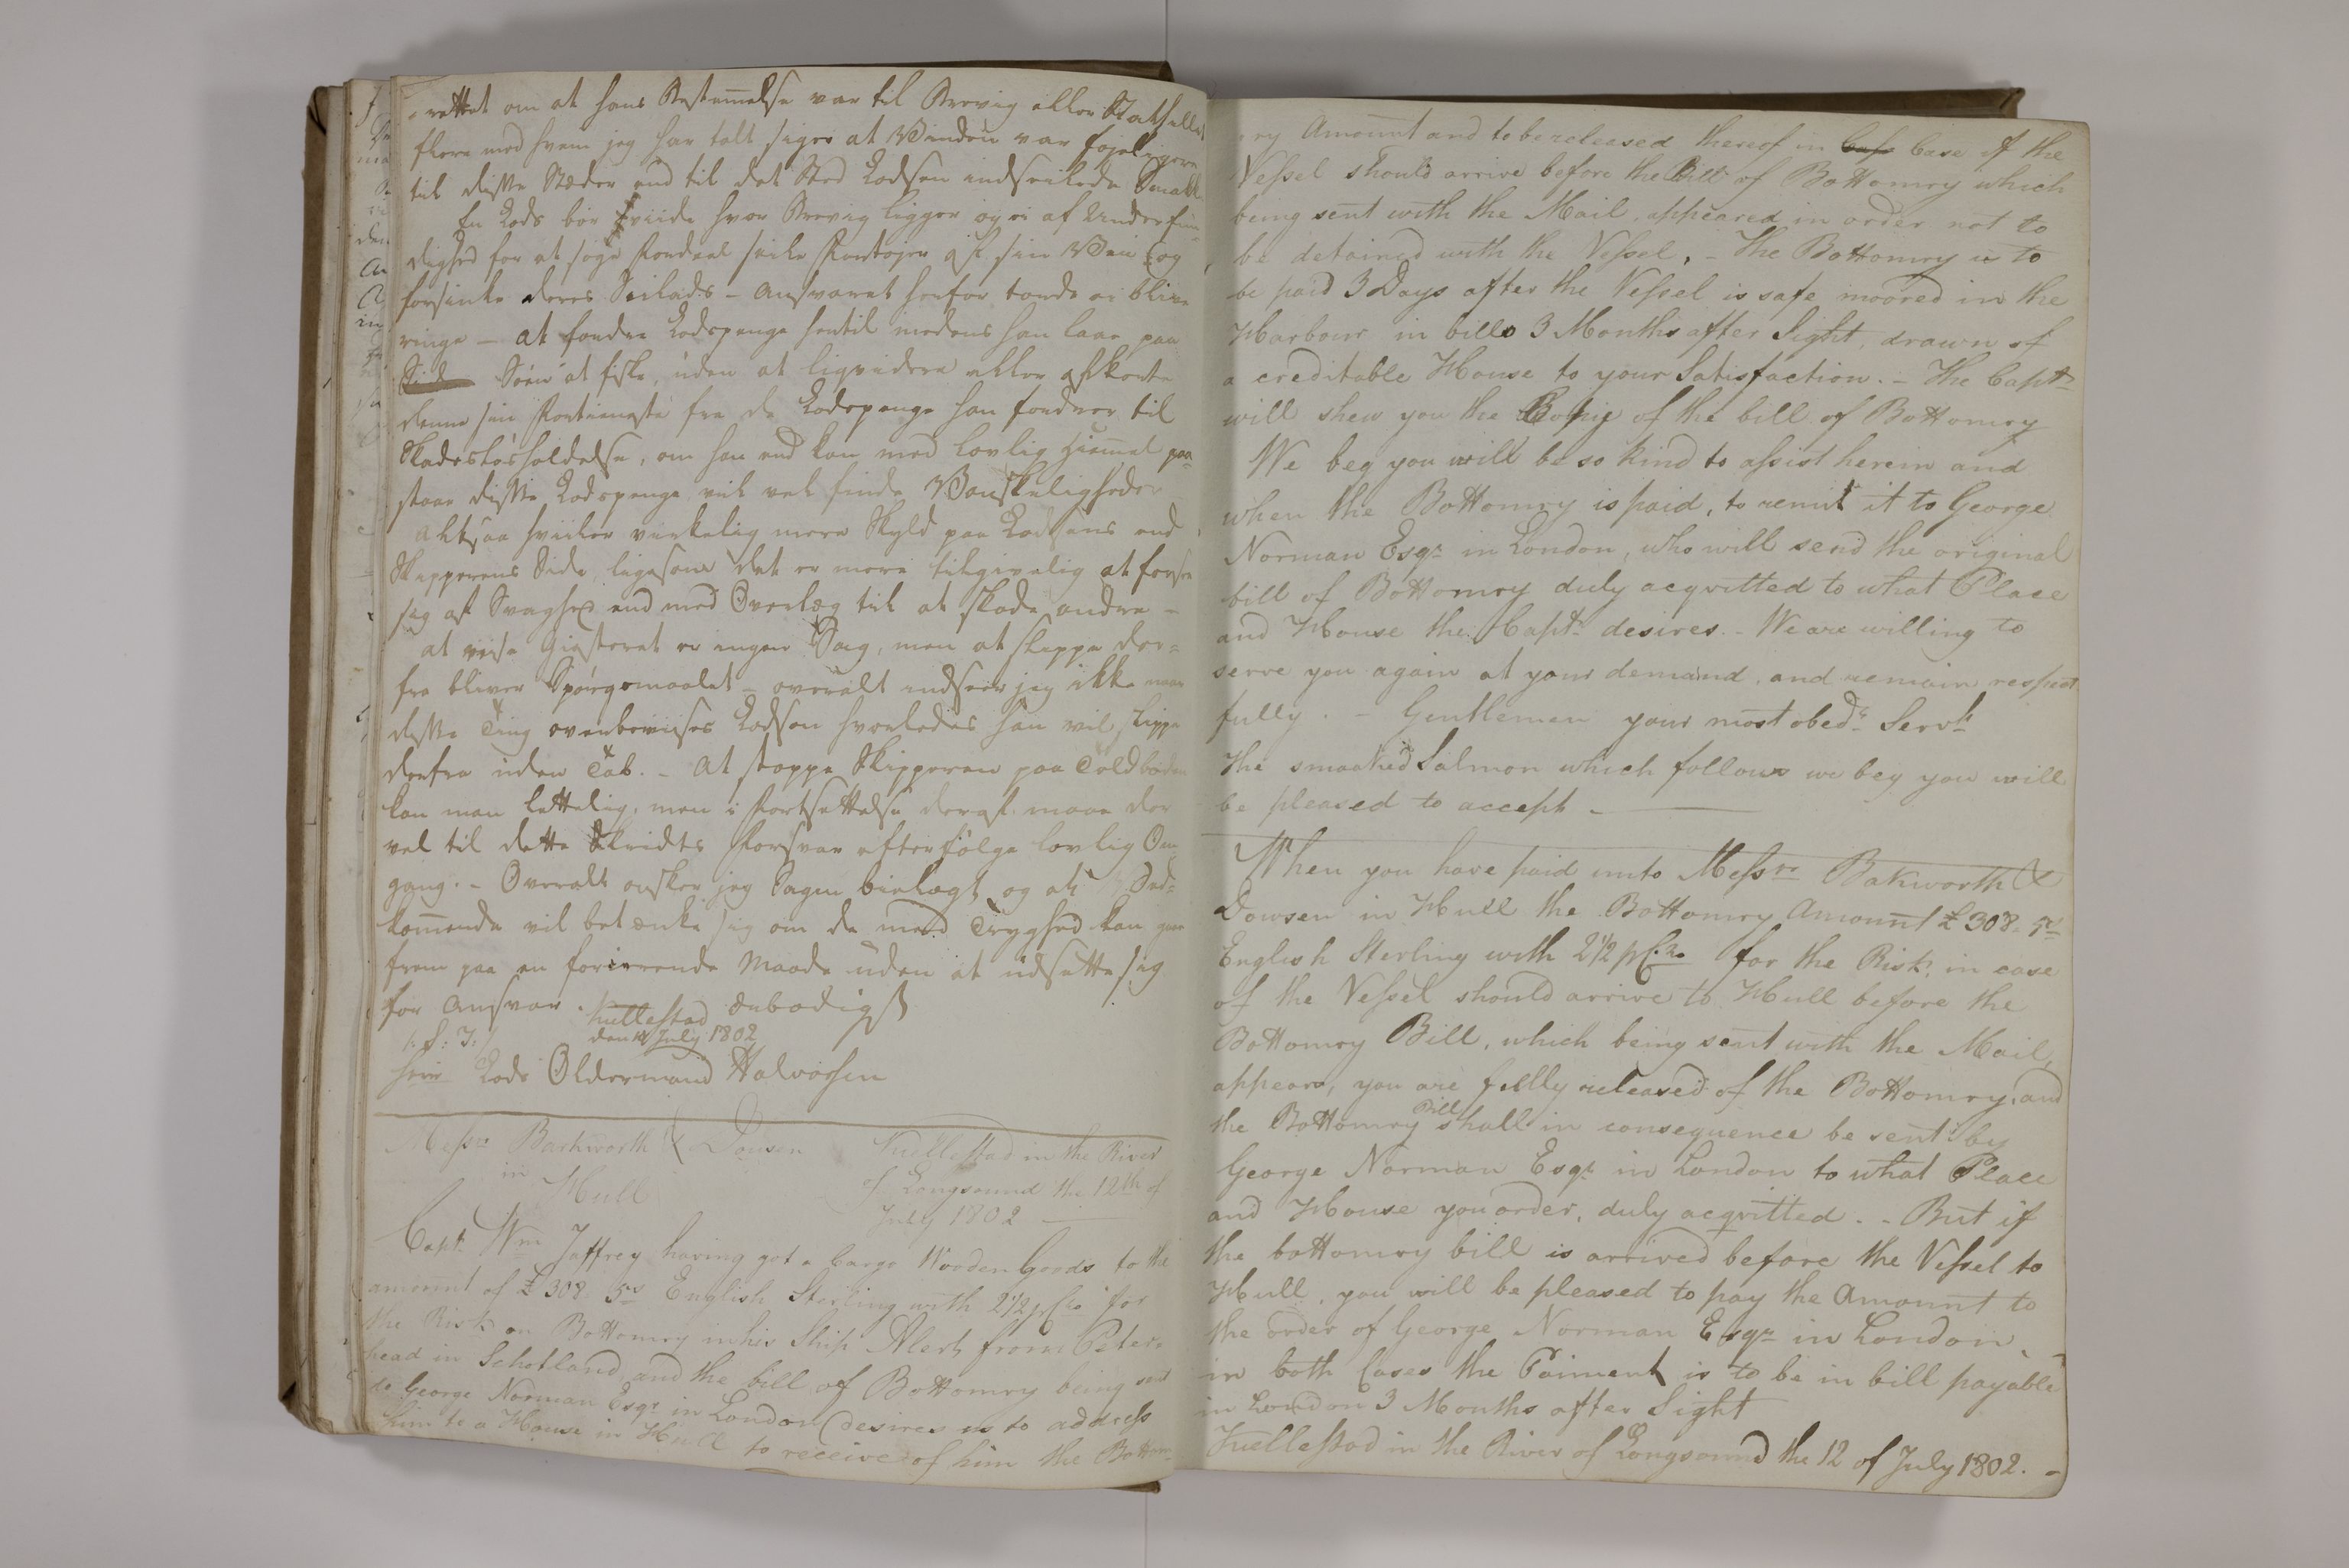 rettet om at hans Bestemmelse var til Brevig eller Stathelle
flere med hvem jeg har talt siger at Vinden varføjeligere
til disse Stæder end til det Sted Lodsen indseilede Smakk
En Lods bør viide hvor Brevig ligger og ei af Underfun-
dighed for at søge Fordeel seile Fartøjer af sin Vei og
forsinke deres Seilads - Ansvaret herfor torde ei blive
ringe - at fordre Lodspenge hertil medens han laae paa
Søen at fiske, uden at liqvidere eller afkorte
denne sin Fortieneste fra de Lodspenge han fordrer til
Skadesløsholdelse, om han end kan med lovlig Hiemmel paa-
staae disse Lodspenge vil vel finde Vanskeligheder
Altsaa hviler virkelig mere Skyld paa Lodsens end
Skipperens Side, ligesom det er mere tilgivelig at forsee
sig af Svaghed end med Overlæg til at skade andre -
at reise Giesteret er ingen Sag, men at slippe der=
fra bliver Spørgsmaalet - overalt indseer jeg ikke naar
disse Ting overbevises Lodsen hvorledes han vil slippe
derfra uden Tab. - At stoppe Skipperen paa Toldboden
kan man lettelig, men i Fortsættelse deraf maae der
vel til dette Skridts Forsvar efterfølge lovlig Om
gang. - Overalt ønsker jeg Sagen bielagt og at Ved=
kommende vil betænke sig om de med Tryghed kan gaae
frem paa en forivrende Maade uden at udsætte sig
for Ansvar. ærbødigst
hullestad
den 12 July 1802
/: S: T: /
Herr Lods Oldermand Halvorsen
Messrs Barkworth & Dousen
in
Hull
Fuellestad in the River
of Longsound the 12th of
July 1802
Capt: Wm Jaffrey having got a Cargo Wooden Goods to the
amount of £ 308. 5s English Sterling with 2 1/2 pCto for
the Risk on Bottomry in his Ship Alert from Peter-
head in Schotland and the bill of Bottomry being sent
to George Norman Esqr in London (desires us to address
him to a House in Hull to receive of him the Bottom-
ry Amount and to be released thereof in Case Case if the
Vessel should arrive before the Bill of Bottomry which
being sent with the Mail, appeared in order not to
be detained with the Vessel, - The Bottomry is to
be paid 3 Days after the Vessel is safe moored in the
Harbour in bills 3 Months after Sight, drawn of
a creditable House to your Satisfaction. - The Captn
will shew you the Copie of the bill of Bottomry
We beg you will be so kind to assist herein and
when the Bottomry is paid, to remit it to George
Norman Esqr in London, who will send the original
bill of Bottomry duly acqvitted to what Place
and House the Captn desires. - We are willing to
serve you again at your demand, and remain respect
fully. - Gentlemen your most obedt Servt
The smoaked Salmon which follows we beg you will
be pleased to accept -
When you have paid unto Messrs Bakworth &
Dowsen in Hull the Bottomry Amount £ 308. 5s
English Sterling with 2 1/2 pCto for the Risk, in case
of the Vessel should arrive to Hull before the
Bottomry Bill, which being sent with the Mail,
appears, you are fully released of the Bottomry, and
the Bottomry Bill shall in consequence be sent by
George Norman Esqr in London to what Place
and House you order, duly acqvitted. - But if
the bottomry bill is arrived before the Vessel to
Hull, you will be pleased to pay the Amount to
the order of George Norman Esqr in London,
in both Cases the Paiment is to be in bill payable
in London 3 Months after Sight
Fuellestad in the River of Longsound the 12 of July 1802. -